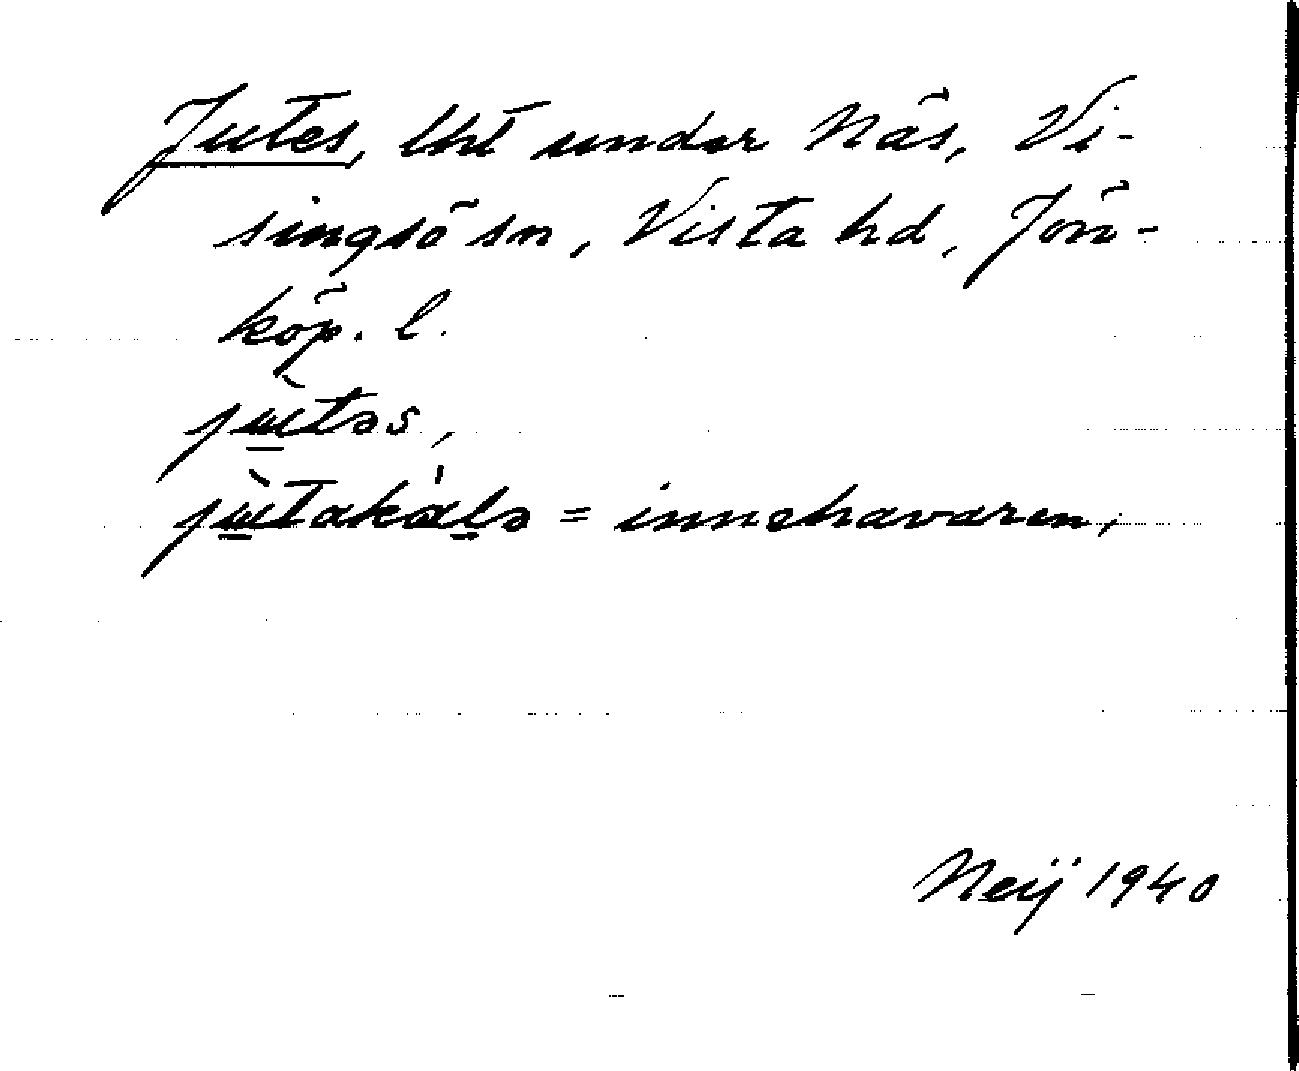 Jutes, lht under Näs, Vi-
singsö sn, Vista hd, Jön-
köp. l.
jùtəs,
jùtakálə = innehavaren,
Neij 1940